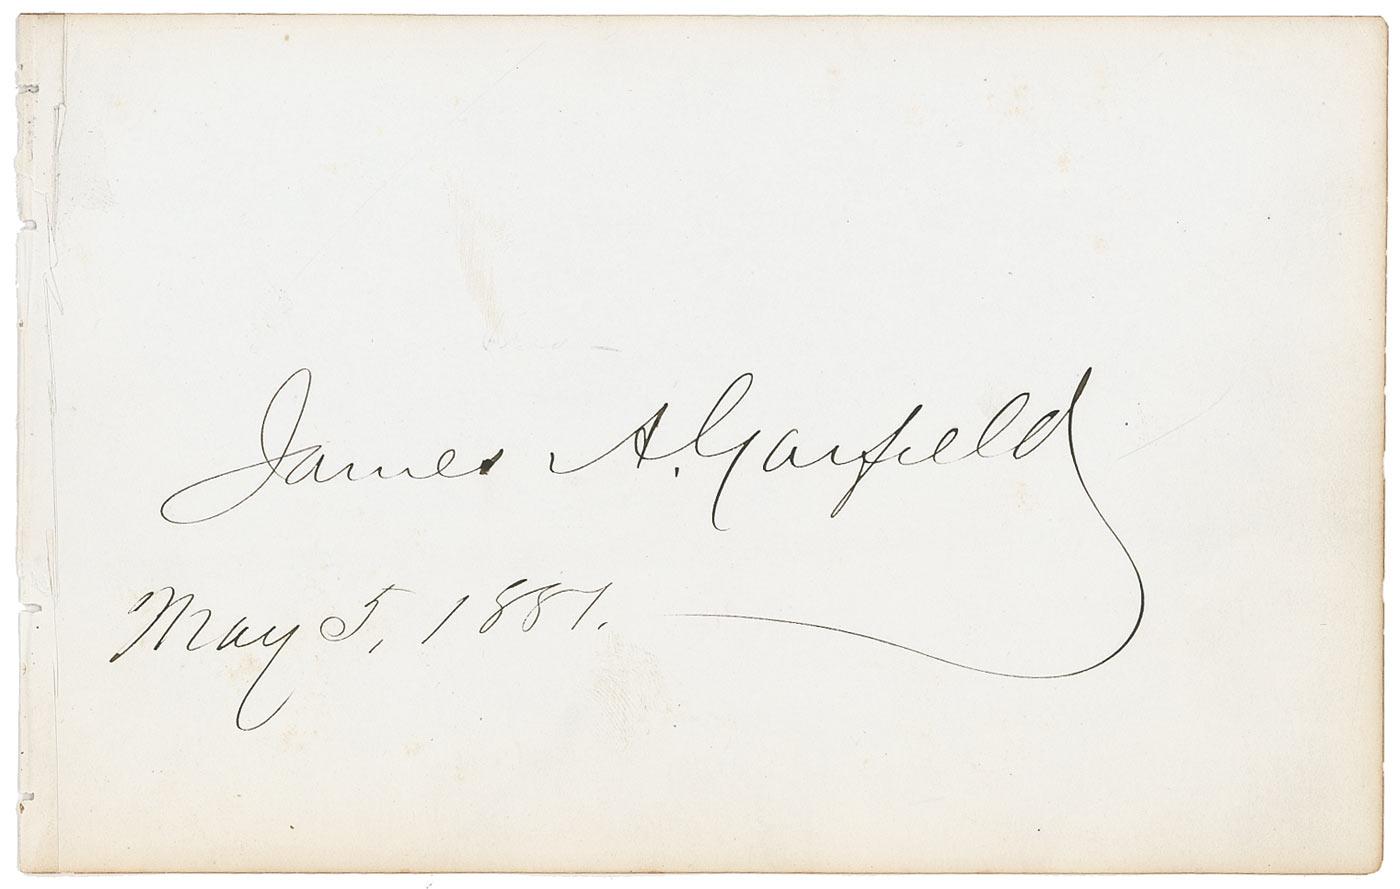 James A. Garfield
May 5, 1881.